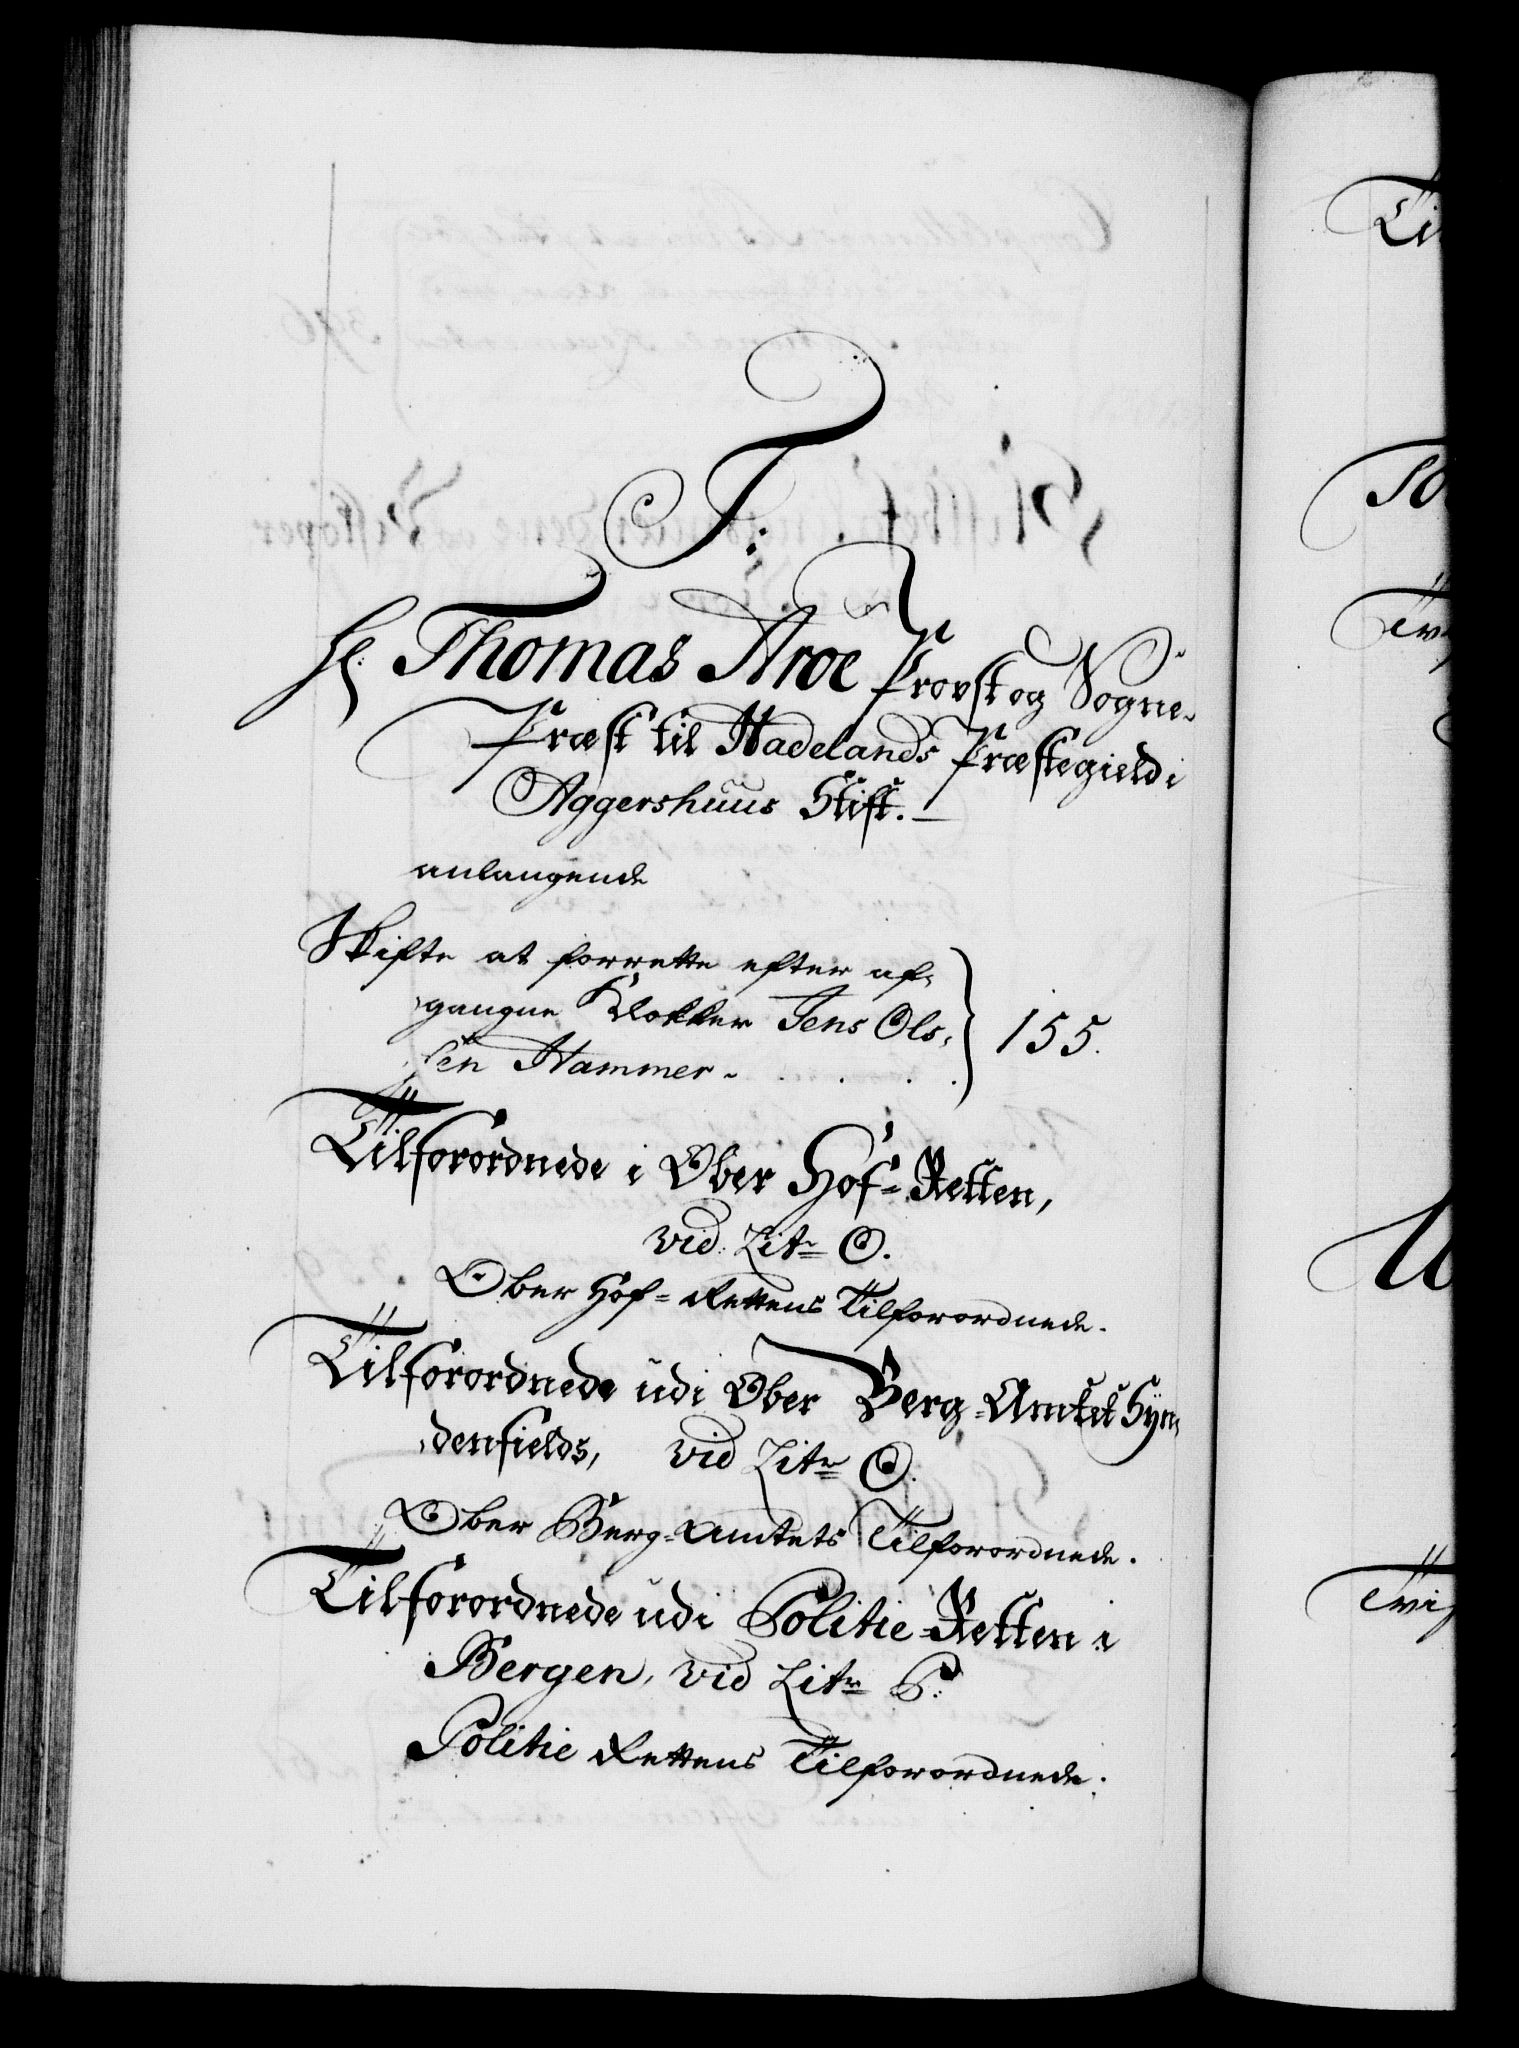 T:
Hr: Thomas Aroe Provst og Sogne-
Præst til Hadelands Præstegield i
Aggershuus Stift.
anlangende
Skifte at forrette efter af-
gangne Klokker Jens Ols-
sen Hammer. . . . 155.
Tilforordnede i Ober Hof-Retten,
vid: Litr O.
Ober Hof-Rettens Tilforordnede.
Tilforordnede udi Ober Berg-Amtet Syn-
denfields, vid Litr O.
Ober Berg-Amtets Tilforordnede.
Tilforordnede udi Politie-Retten i
Bergen, vid Litr P:
Politie Rettens Tilforordnede.